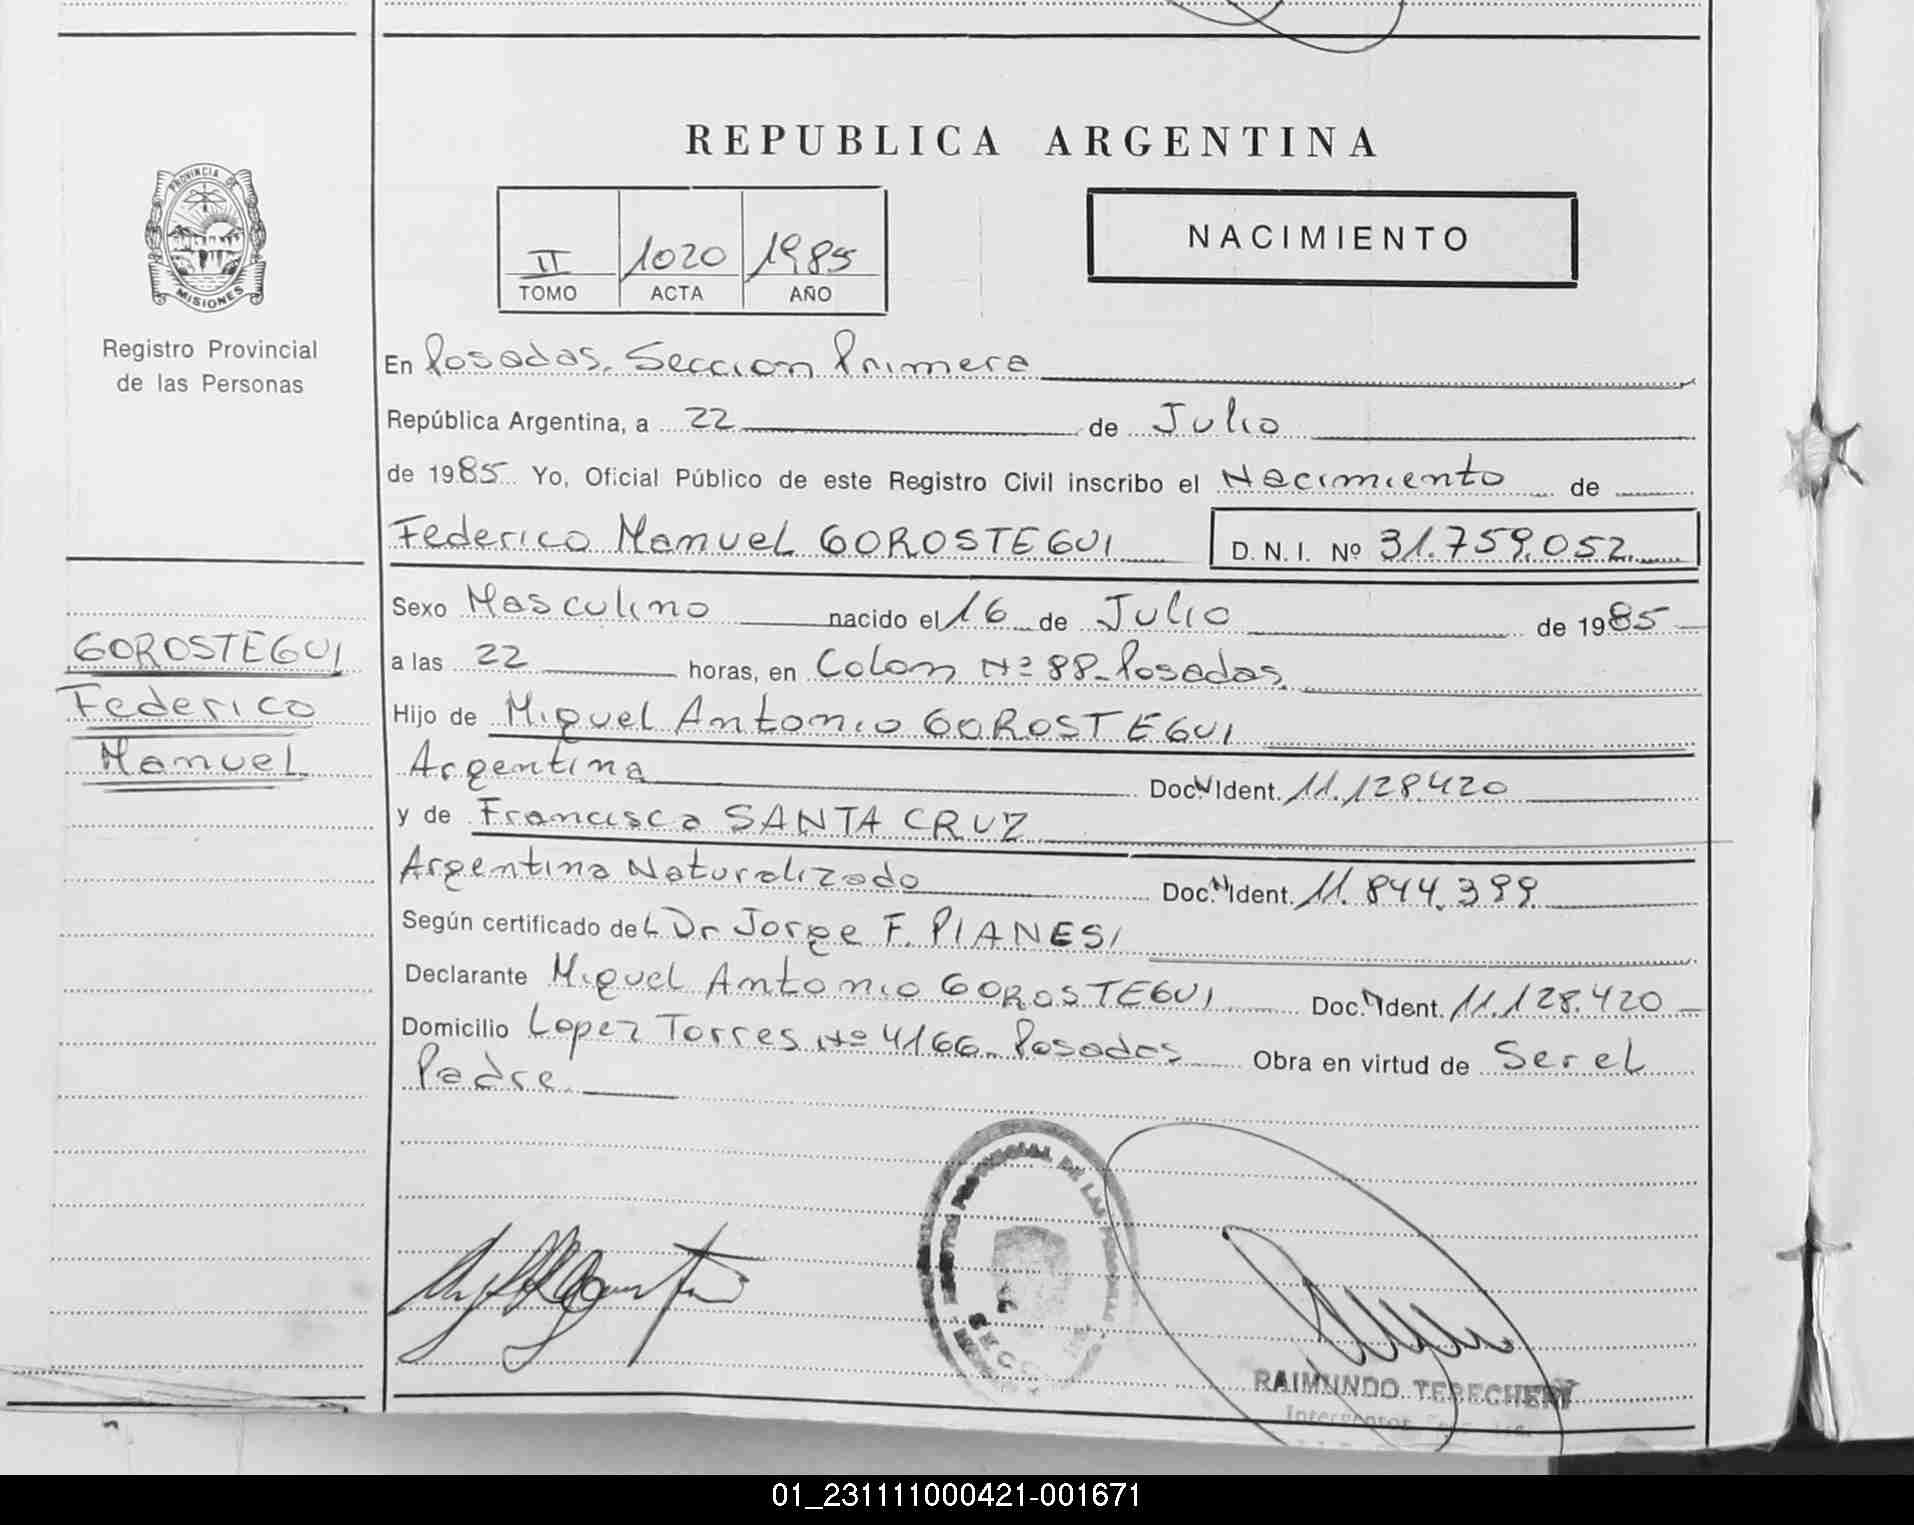 REPUBLICA ARGENTINA
PROVINCIA DE
MISIONES
Registro Provincial
de las Personas
II 1020 1985
TOMO ACTA AÑO
NACIMIENTO
En Posadas, Seccion Primera
República Argentina, a 22 de Julio
de 1985 Yo, Oficial Público de este Registro Civil inscribo el Nacimiento de
Federico Manuel GOROSTEGUI D. N. I. Nº 31.759.052
Sexo Masculino nacido el 16 de Julio de 1985
a las 22 horas, en Colon Nº 88 - Posadas
Hijo de Miguel Antonio GOROSTEGUI
Argentina Doc. N Ident. 11.128.420
y de Francisca SANTA CRUZ
Argentina Naturalizado Doc. N Ident. 11.844.399
Según certificado del Dr Jorge F. PIANESI
Declarante Miguel Antonio GOROSTEGUI Doc. N Ident. 11.128.420
Domicilio Lopez Torres Nº 4166 - Posadas Obra en virtud de Ser el
Padre
GOROSTEGUI
Federico
Manuel
PROVINCIAL DE LAS
RAIMUNDO TERECHERY
01_231111000421-001671